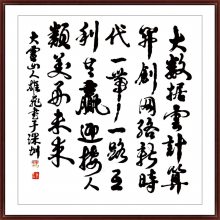 大数据云计算
开创网络新时
代一带一路互
利共赢迎接人
类美好未来
大云山人雄飞书于深圳